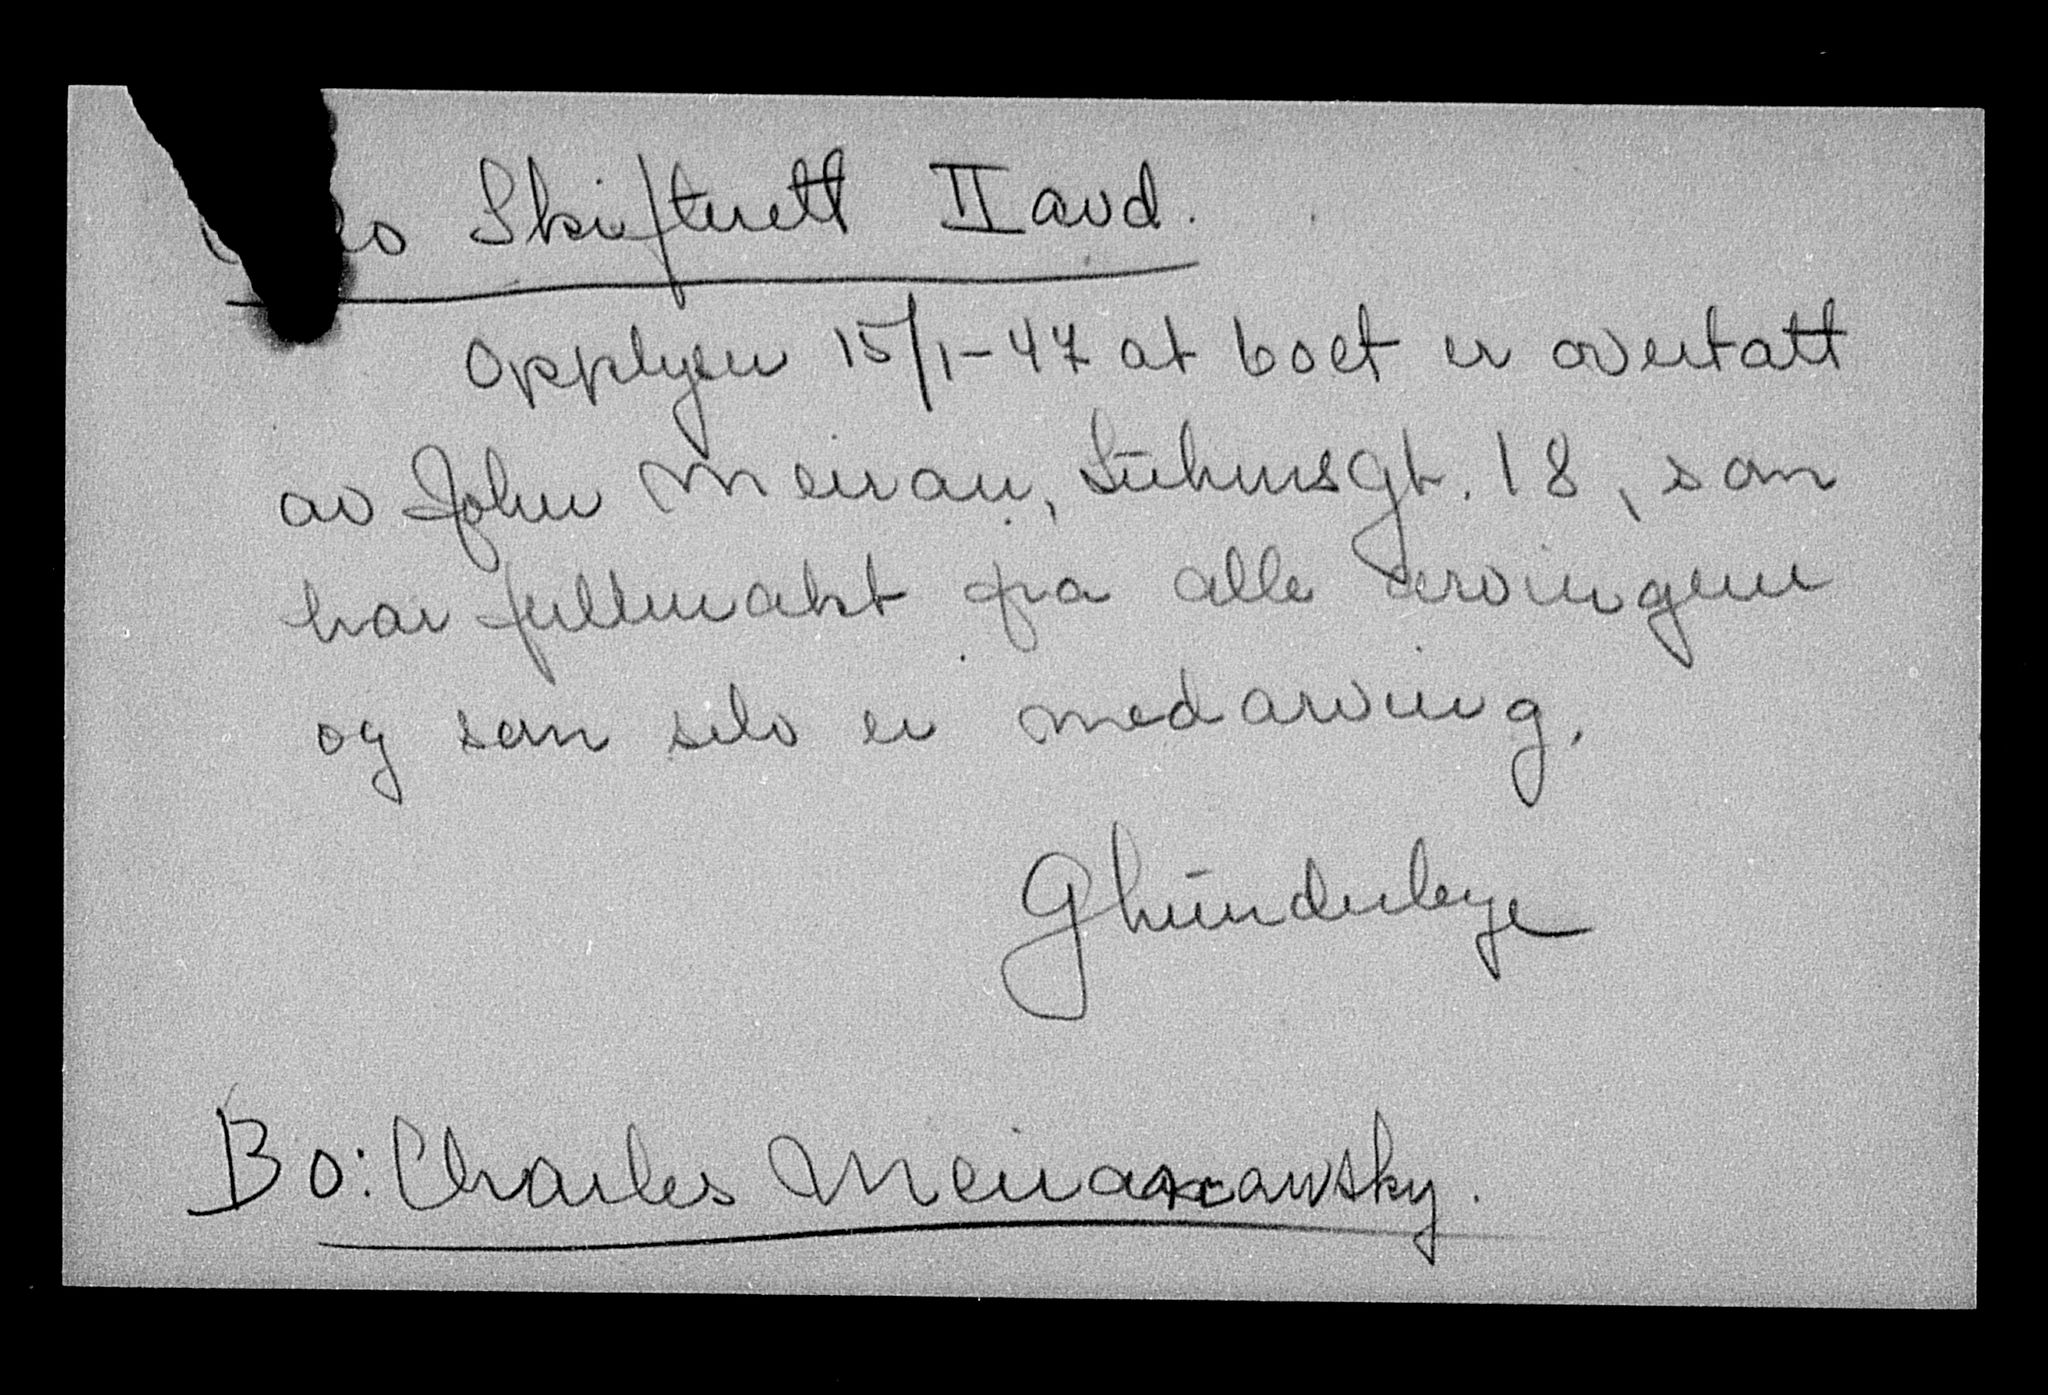 Oslo Skifterett II avd.
Opplyser 15/1-47 at boet er overtatt
av John Meiran, Suhmsgt. 18, som
har fullmakt fra alle arvingene
og som selv er medarving.
Bo: Charles